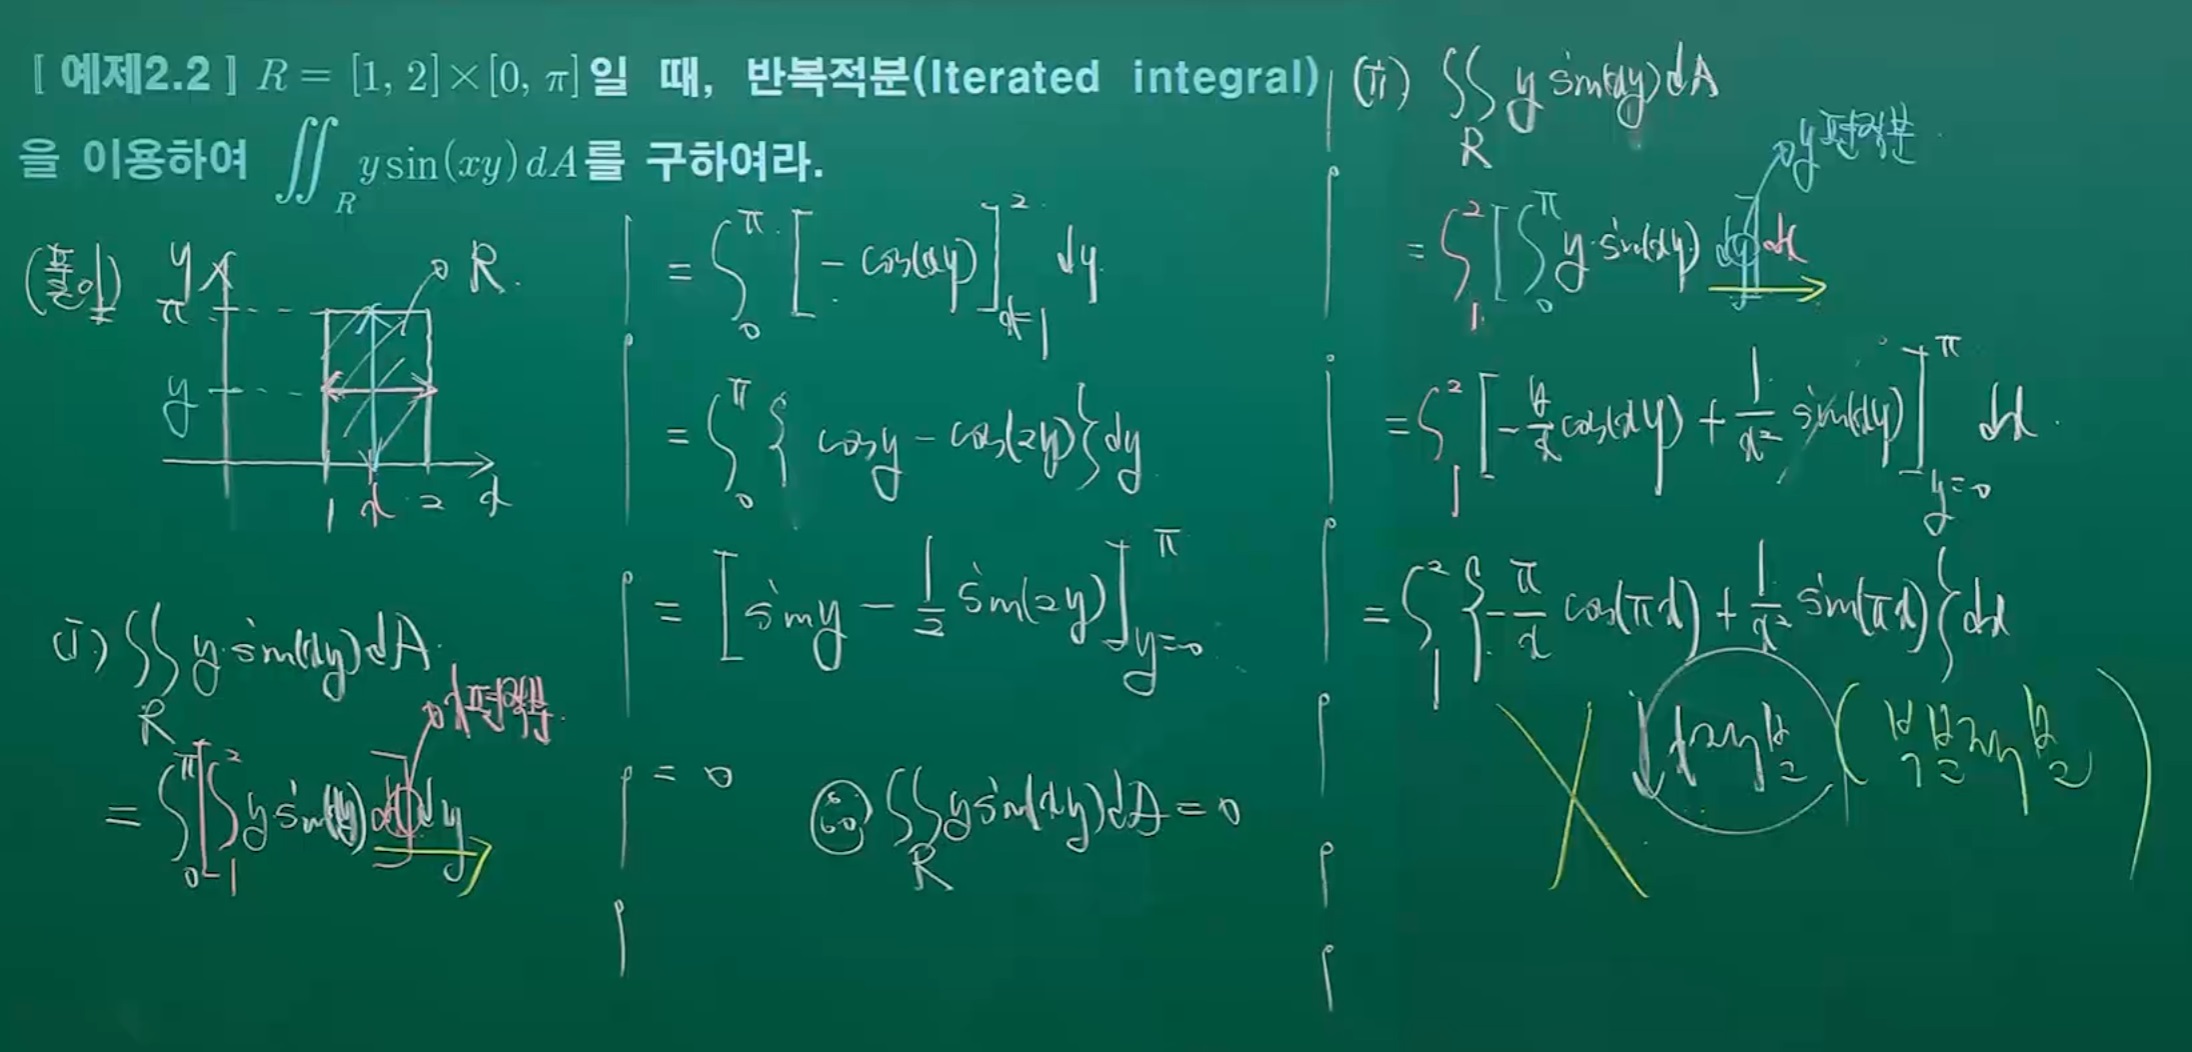 [ 예제2.2 ] R = [1, 2]×[0, π]일 때, 반복적분(Iterated integral)
을 이용하여 ∬_R y sin(xy) dA를 구하여라.
(풀이)
y
R.
π
y
1 x 2 x
(i) ∬_R y sin(xy) dA
x편적분
= ∫_0^π [∫_1^2 y sin(xy) dx] dy
= ∫_0^π [-cos(xy)]_{x=1}^2 dy
= ∫_0^π { cos y - cos(2y) } dy
= [sin y - 1/2 sin(2y)]_{y=0}^π
= 0
∴ ∬_R y sin(xy) dA = 0
(ii) ∬_R y sin(xy) dA
y편적분
= ∫_1^2 [∫_0^π y sin(xy) dy] dx
= ∫_1^2 [-y/x cos(xy) + 1/x² sin(xy)]_{y=0}^π dx
= ∫_1^2 { -π/x cos(πx) + 1/x² sin(πx) } dx